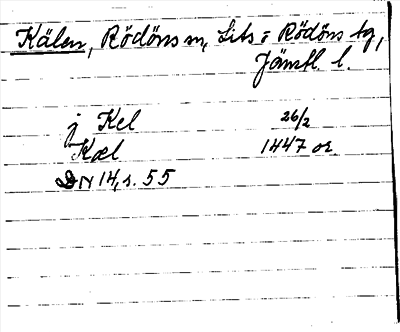 Kälen, Rödöns sn, Lits o Rödöns tg,
Jämtl. l.
j Kel 26/2
Kæl 1447 or.
DN 14, s. 55